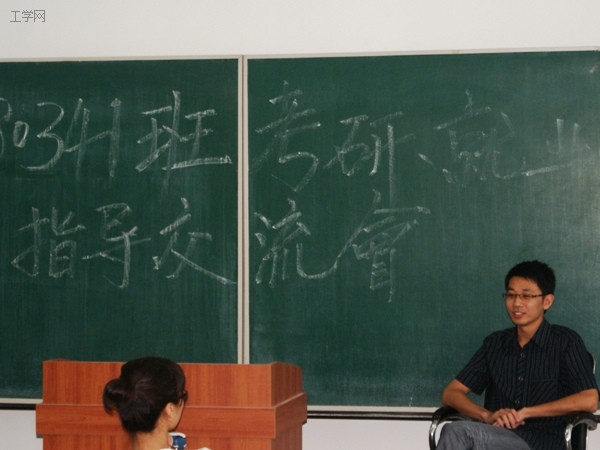 工学网
8034班 考研、就业
指导交 流會